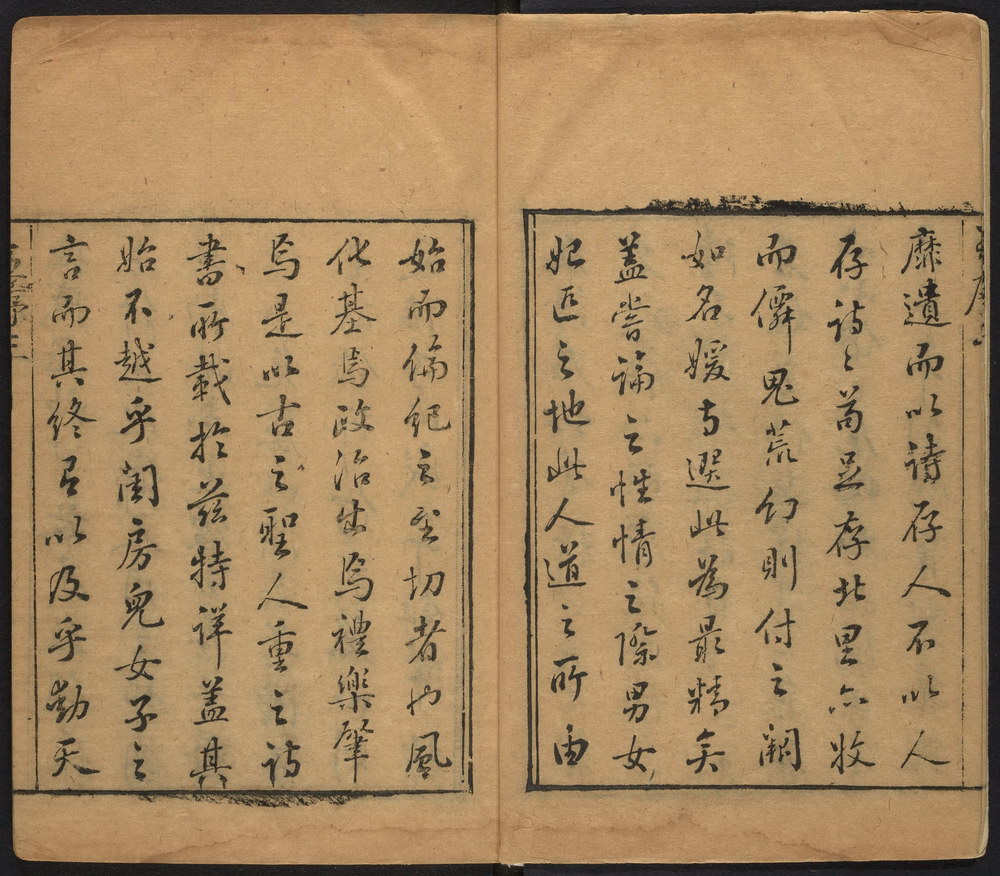 靡遺而以詩存人不以人
存詩〻苟足存北里亦收
而僻鬼荒幻則付之闕
如名媛方選此為最精矣
蓋嘗論之性情之際男女
妃匹之地此人道之所由
始而倫紀之至切者也風
化基焉政治出焉禮樂肇
焉是以古之聖人重之詩
書所載於茲特詳蓋其
始不越乎閨房兒女子之
言而其終有以及乎動天